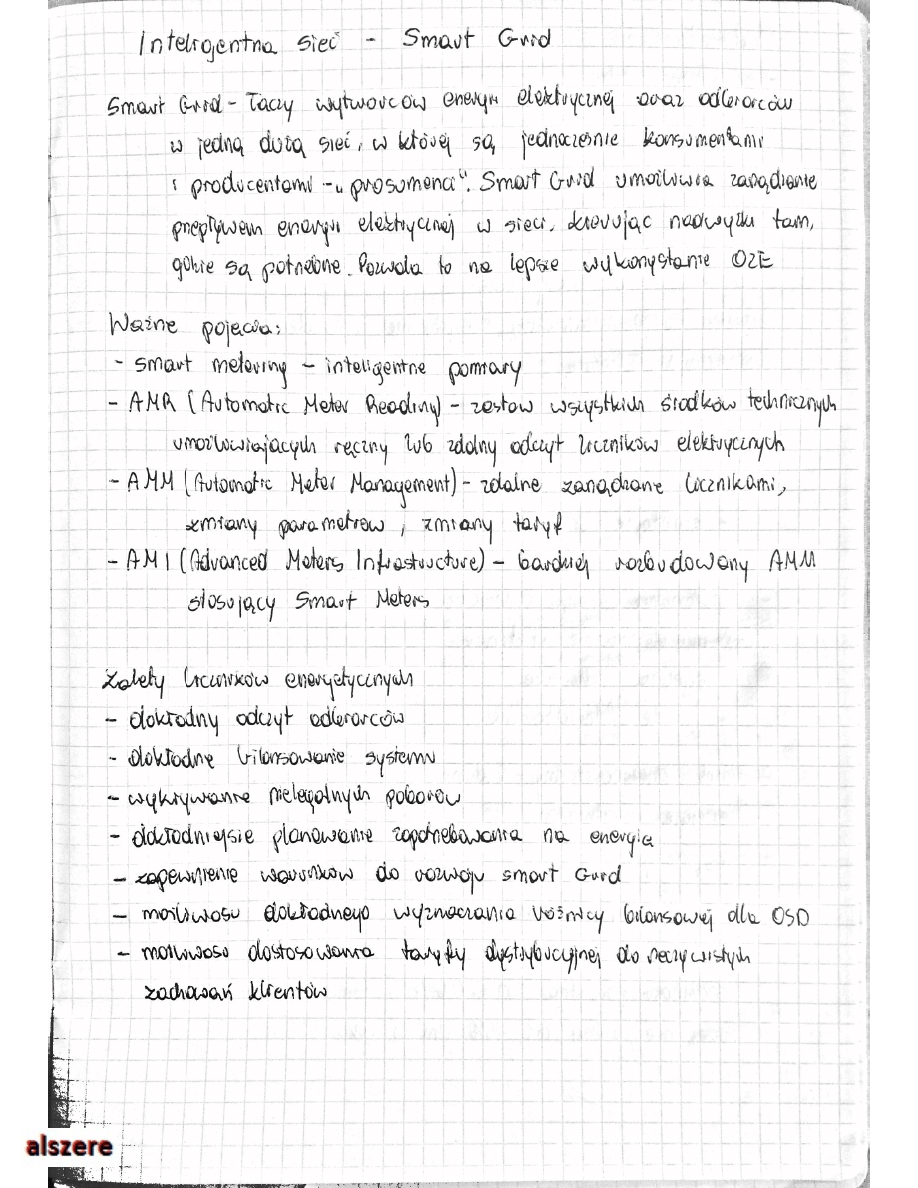 Inteligentna sieć - Smart Grid
Smart Grid - łączy wytwórców energii elektrycznej oraz odbiorców
w jedną dużą sieć, w której są jednocześnie konsumentami
i producentami - „prosumenci". Smart Grid umożliwia zarządzanie
przepływem energii elektrycznej w sieci, kierując nadwyżki tam,
gdzie są potrzebne. Pozwala to na lepsze wykorzystanie OZE
Ważne pojęcia:
- smart metering - inteligentne pomiary
- AMR (Automatic Meter Reading) - zestaw wszystkich środków technicznych
umożliwiających ręczny lub zdalny odczyt liczników elektrycznych
- AMM (Automatic Meter Management) - zdalne zarządzanie licznikami,
zmiany parametrów, zmiany taryf
- AMI (Advanced Meters Infrastructure) - bardziej rozbudowany AMM
stosujący Smart Meters
Zalety liczników energetycznych
- dokładny odczyt odbiorców
- dokładne bilansowanie systemu
- wykrywanie nielegalnych poborów
- dokładniejsze planowanie zapotrzebowania na energię
- zapewnienie warunków do rozwoju smart Grid
- możliwość dokładnego wyznaczania różnicy bilansowej dla OSD
- możliwość dostosowania taryfy dystrybucyjnej do rzeczywistych
zachowań klientów
alszere